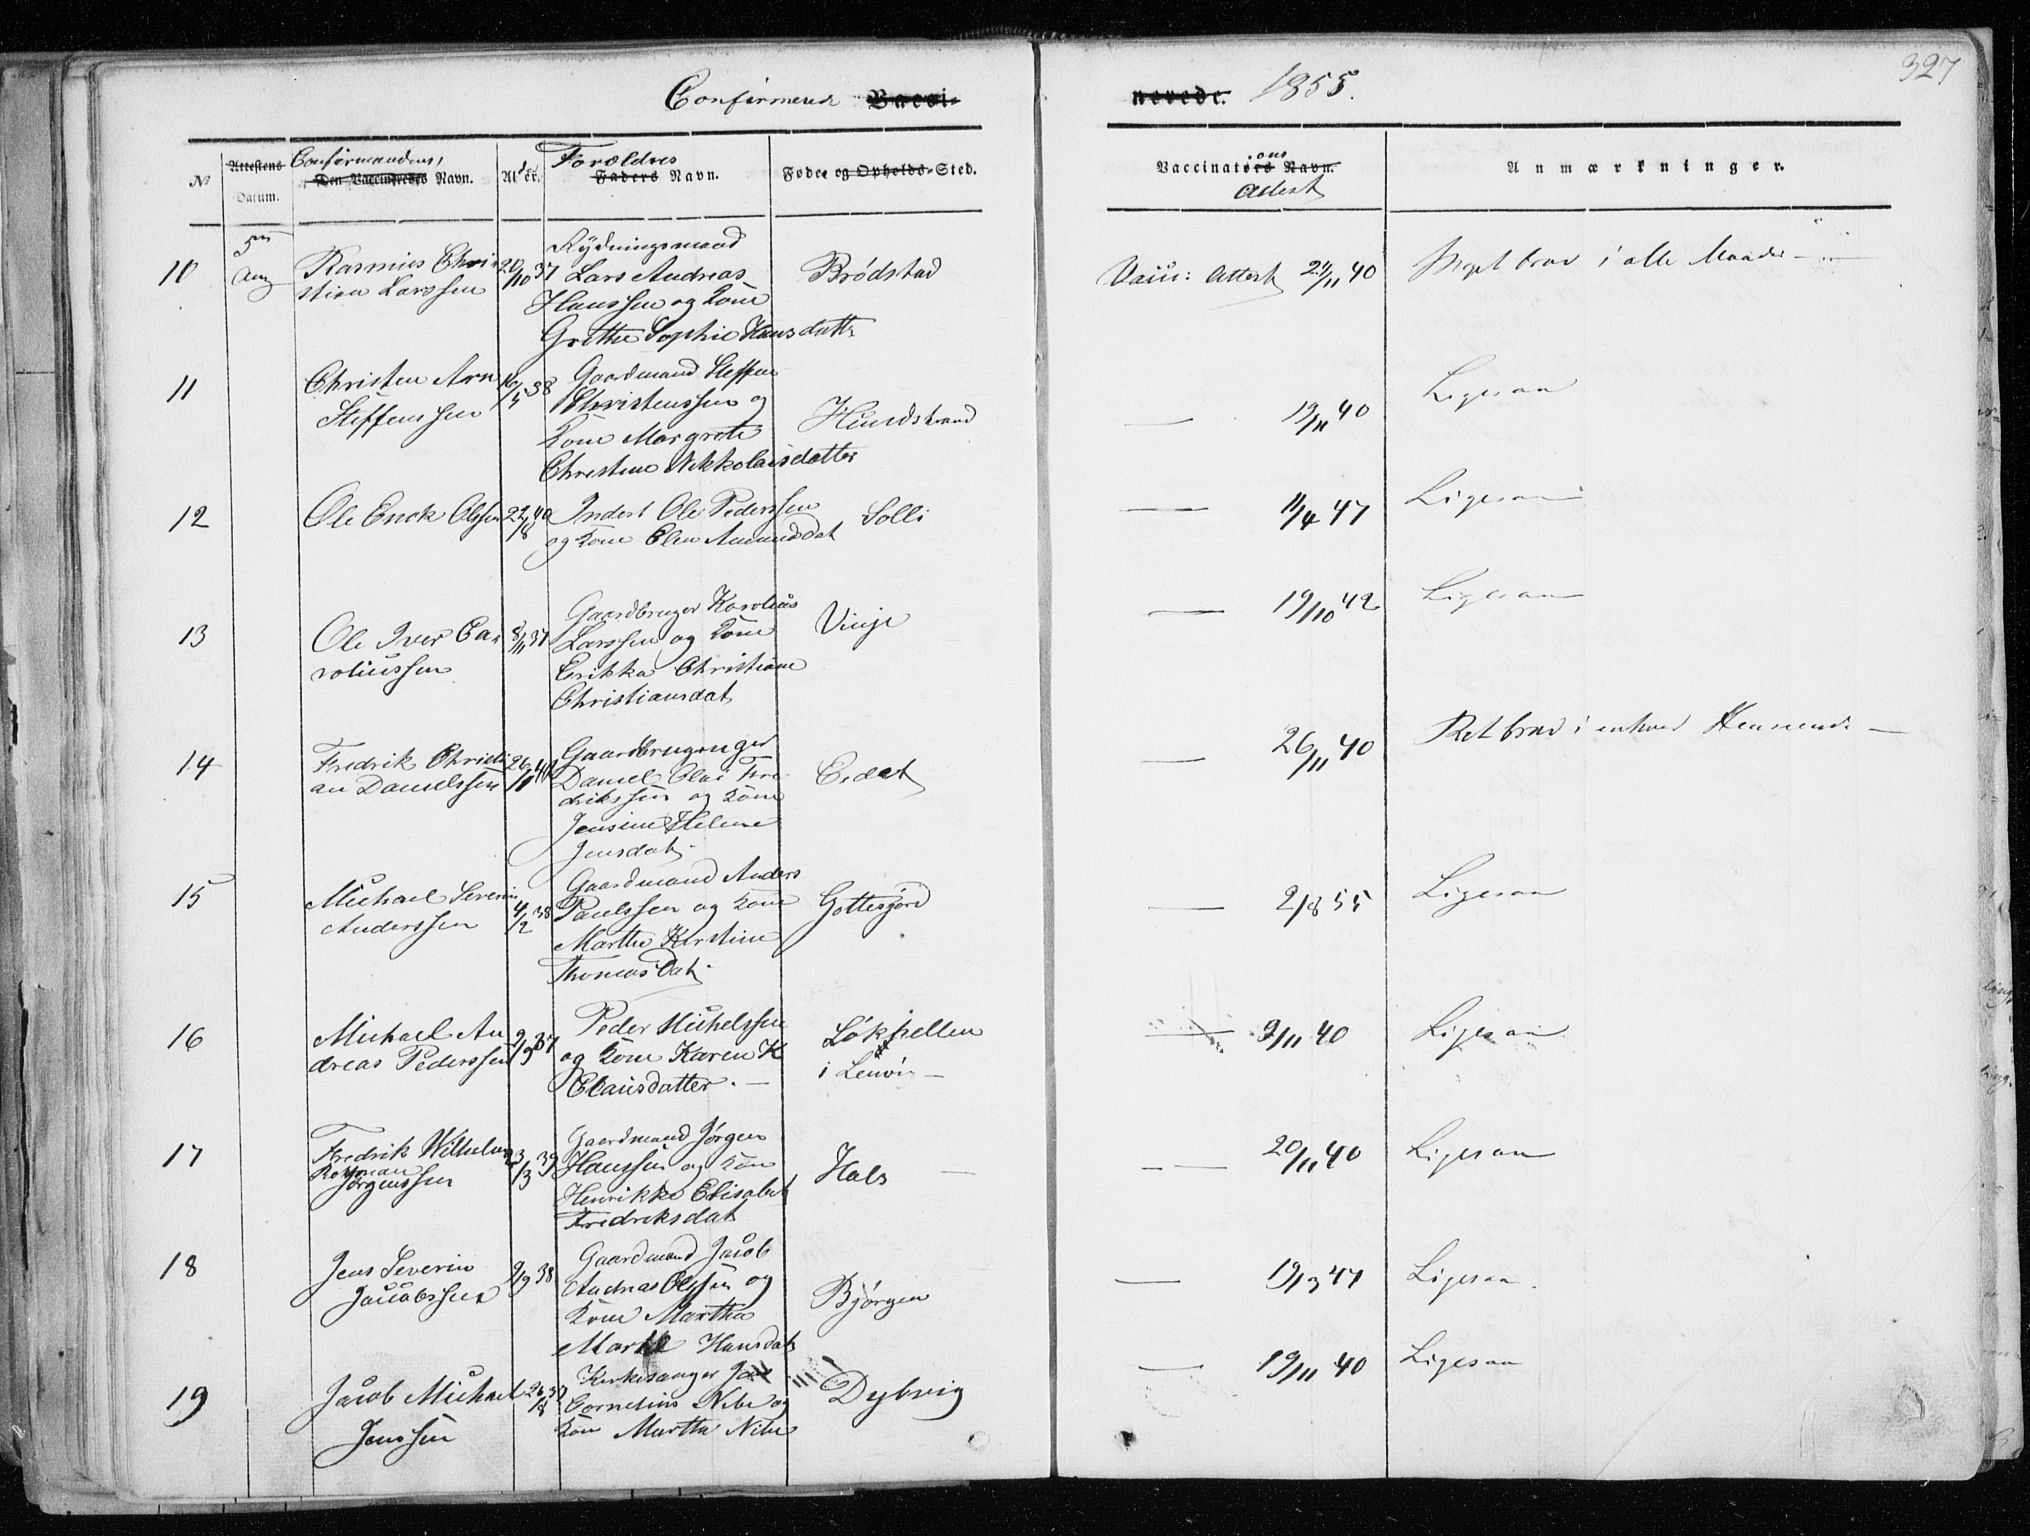 327
Confirmerede Vacci-
nerede. 1855.
No
Attestens Datum.
Confirmandens,
Den Vaccineredes Navn.
Alder.
Forældres
Faders Navn.
Føde- og Opholds-Sted.
Vaccinations
Vaccinatørs Navn.
Attest
Anmærkninger.
10
5te
Aug
Rasmus Chri
stian Larssen
20/10 37
Rydningsmand
Lars Andreas
Hanssen og Kone
Grethe Sophie Hansdatter
Brødstad
Vacc: Attest 24/11 40
Meget brav i alle Maader
11
Christen Arn
Steffenssen
10/4 38
Gaardmand Steffen
Christenssen og
Kone Margrete
Christine Nikkolaisdatter
Hundstrand
— 19/11 40
Ligesaa
12
Ole Enok Olssen
22/8 40
Inderst Ole Pederssen
og Kone Elen Amundsdat
Solli
— 11/4 47
Ligesaa
13
Ole Iver Ca
roliussen
8/11 37
Gaardbruger Karolius
Larssen og Kone
Erikka Christiane
Christiansdat
Vinje
— 19/10 42
Ligesaa
14
Fredrik Christi
an Danielssen
26/11 40
Gaardbrugruger
Daniel Olai Fre
drikssen og Kone
Jensine Helene
Jensdat
Eidet
— 26/11 40
Ret brav i enhver Henseende —
15
Michael Severin
Anderssen
4/2 38
Gaardmand Anders
Paulssen og Kone
Marthe Kirstine
Thomas Dat.
Gottesjord
— 2/8 55
Ligesaa
16
Michael An
dreas Pederssen
9/9 37
Peder Michelssen
og Kone Karen K
Clausdatter. —
Løkhellen
i Lenvig —
— 9/11 40
Ligesaa
17
Fredrik Wilhelm
Jørgenssen
23/3 39
Gaardmand Jørgen
Hanssen og Kone
Henrikke Elisabet
Fredriksdat
Hals —
— 20/11 40
Ligesaa
18
Jens Severin
Jacobssen
9/9 38
Gaardmand Jacob
Andreas Olssen og
Kone Martha
Marie Hansdat
Bjørgen
— 19/3 47
Ligesaa.
19
Jacob Michael
Jenssen
26/8 37
Kirkesanger Jens
Cornelius Nibe og
Kone Martha Nibe
Dybvig
— 19/11 40
Ligesaa